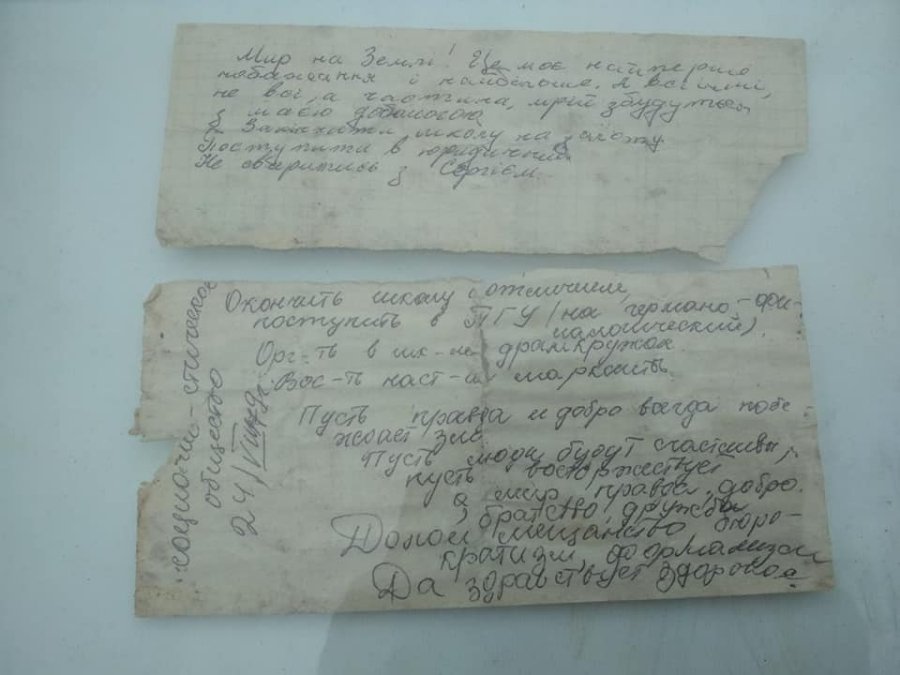 Мир на Землі! Це моє найперше
побажання і найбільше. А всі інші,
не всі, а частина, мрій збудуться
з моєю допомогою
Закінчити школу на
Поступити в юридичний
Не сваритись з Сергієм.
Окончить школу с отличием,
поступить в ПГУ (на германо-фи-
лологический).
Орг-ть в шк-ле драмкружок.
Вос-ть наст-
Пусть правда и добро всегда побе-
ждает зло
Пусть люди будут счастливы,
пусть восторжествует
а мир, правда, добро,
братство, дружба
Долой мещанство, бюро-
кратизм, формализм
Да здравствует здоровое
социали-стическое
общество
24/VIII